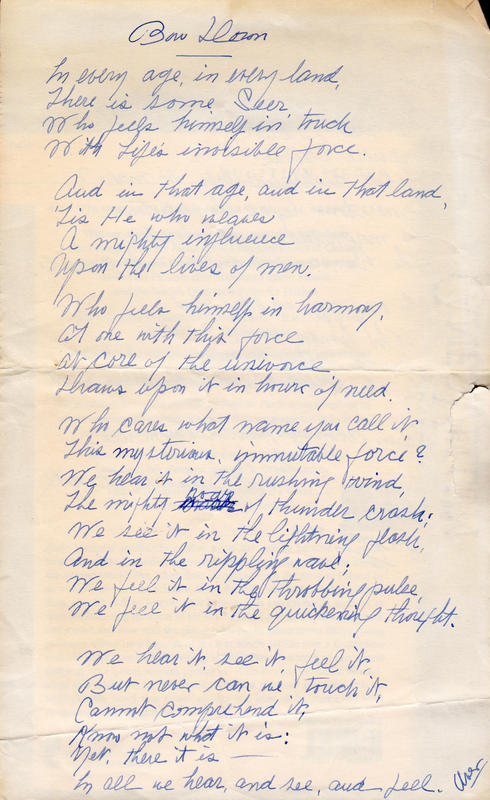 Bow Down
In every age, in every land,
There is some Seer
Who feels himself in touch
With Life's invisible force.
And in that age, and in that land,
'Tis He who weaves
A mighty influence
Upon the lives of men.
Who feels himself in harmony,
At one with this force
at core of the universe
Draws upon it in hours of need.
Who cares what name you call it
This mysterious, immutable force?
We hear it in the rushing wind,
The mighty roar of thunder crash;
We see it in the lightning flash,
And in the rippling wave;
We feel it in the throbbing pulse,
We feel it in the quickening thought.
We hear it, see it, feel it,
But never can we touch it,
Cannot comprehend it,
Know not what it is:
Yet, there it is —
In all we hear, and see, and feel.